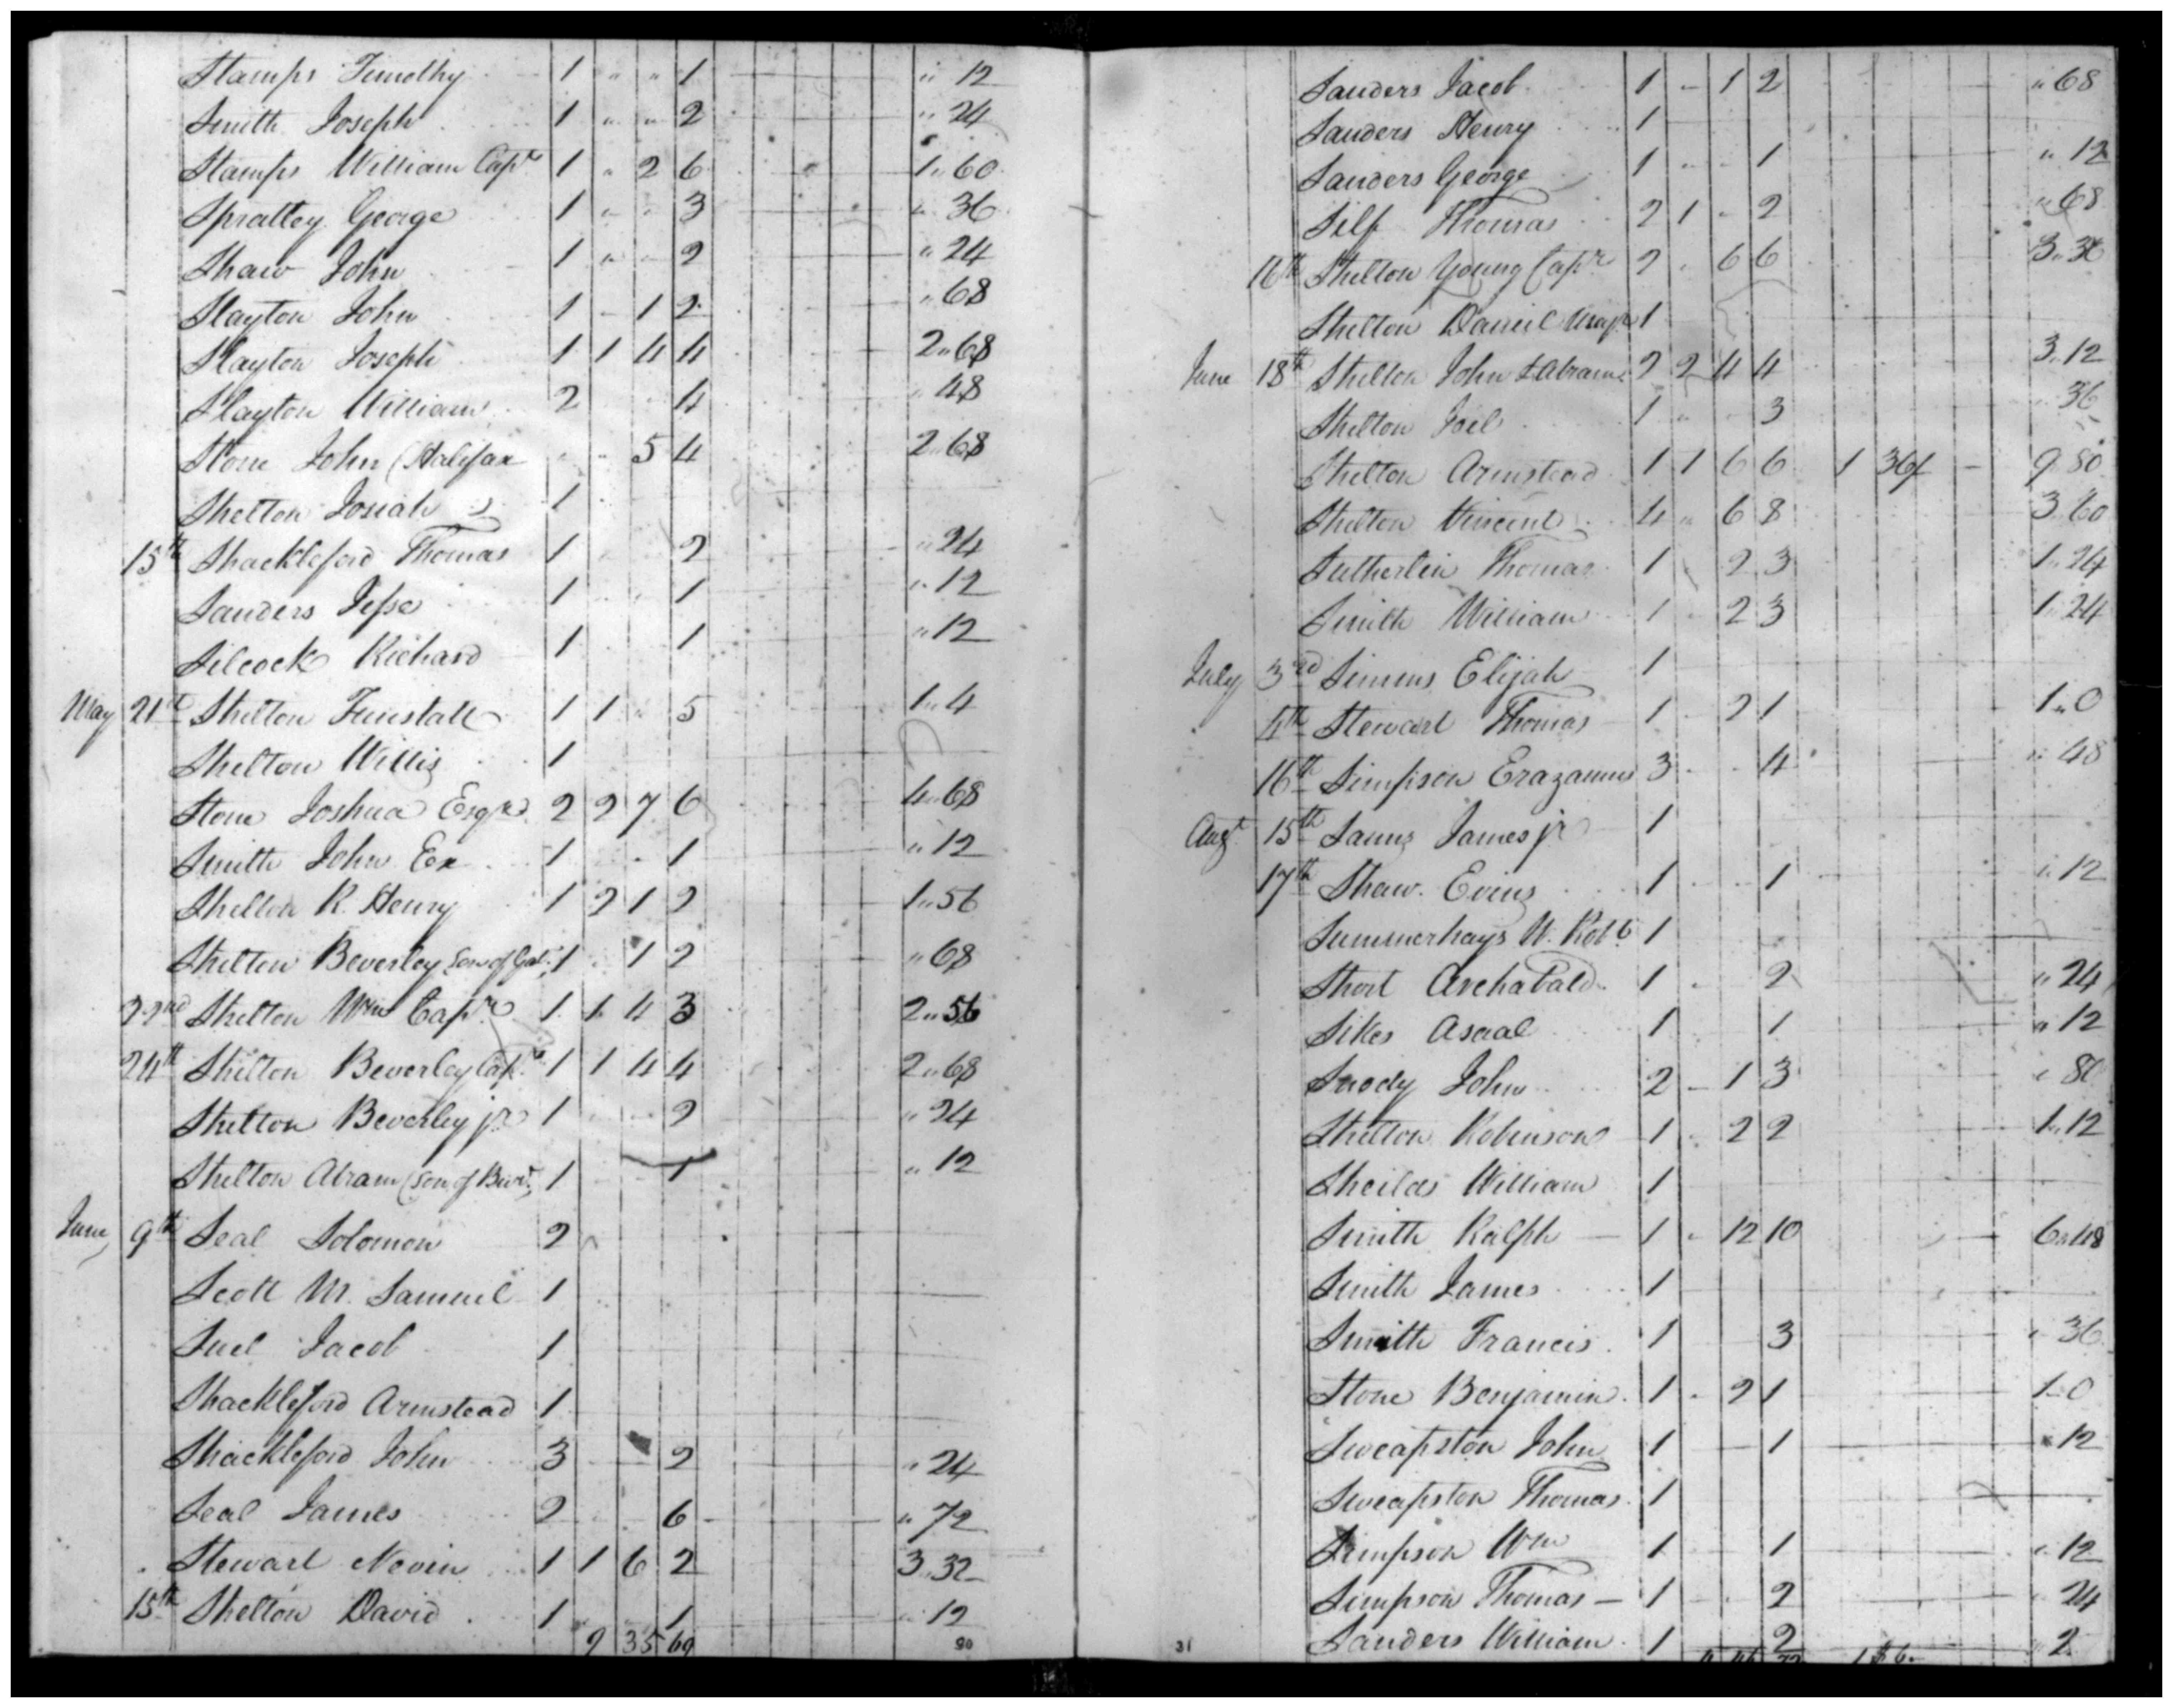 Stamps Timothy 1 " " 1 " 12
Smith Joseph 1 " " 2 " 24
Stamps William Capt 1 " 2 6 1 " 60
Spratley George 1 " " 3 " 36
Shaw John 1 " " 2 " 24
Slayton John 1 - 1 2 " 68
Slayton Joseph 1 1 4 4 2 " 68
Slayton William 2 4 " 48
Stone John (Halifax " " 5 4 2 " 68
Shelton Josiah 1
15th Shackleford Thomas 1 2 " 24
Sanders Jesse 1 1 " 12
Silcock Richard 1 1 " 12
May 21st Shelton Tunstall 1 1 " 5 1 " 4
Shelton Willis 1
Stone Joshua Esqr 2 2 7 6 4 " 68
Smith John Ex 1 1 " 12
Shelton R. Henry 1 2 1 2 1 " 56
Shelton Beverley son of Gab. 1 1 2 " 68
22nd Shelton Wm Capt 1 1 4 3 2 " 56
24th Shelton Beverley Capt 1 1 4 4 2 " 68
Shelton Beverley jr 1 2 " 24
Shelton Abram (son of Bevr. 1 1 " 12
June 9th Seal Solomon 2
Scott M. Samuel 1
Suel Jacob 1
Shackleford Armstead 1
Shackleford John 3 2 " 24
Seal James 2 6 " 72
Stewart Nevin 1 1 6 2 3 " 32
15th Shelton David 1 1 " 12
9 35 69
30
Sanders Jacob 1 - 1 2 " 68
Sanders Henry 1
Sanders George 1 - - 1 " 12
Silf Thomas 2 1 - 2 " 68
16th Shelton Young Capt 2 " 6 6 3 " 36
Shelton Daniel Majr 1
June 18th Shelton John & Abram 2 2 4 4 3 " 12
Shelton Joel 1 " 3 " 36
Shelton Armstead 1 1 6 6 1 364 - 9 80
Shelton Vincent 4 " 6 8 3 60
Sutherlin Thomas 1 2 3 1 " 24
Smith William 1 2 3 1 " 24
July 3rd Simms Elijah 1
4th Stewart Thomas 1 - 2 1 1 " 0
16th Simpson Erazamus 3 - - 4 " 48
Augt 15th Sanns James jr 1
17th Shaw Evins 1 1 " 12
Summerhays W. Robt 1
Short Archabald 1 2 " 24
Sikes Asaal 1 1 " 12
Snody John 2 - 1 3 " 80
Shelton Robinson 1 " 2 2 1 " 12
Sheilds William 1
Smith Ralph 1 " 12 10 6 " 48
Smith James 1
Smith Francis 1 3 " 36
Stone Benjamin 1 - 2 1 1 " 0
Sweapston John 1 1 " 12
Sweapston Thomas 1
Simpson Wm 1 1 " 12
Simpson Thomas 1 2 " 24
Sanders William 1 2 " 2
31